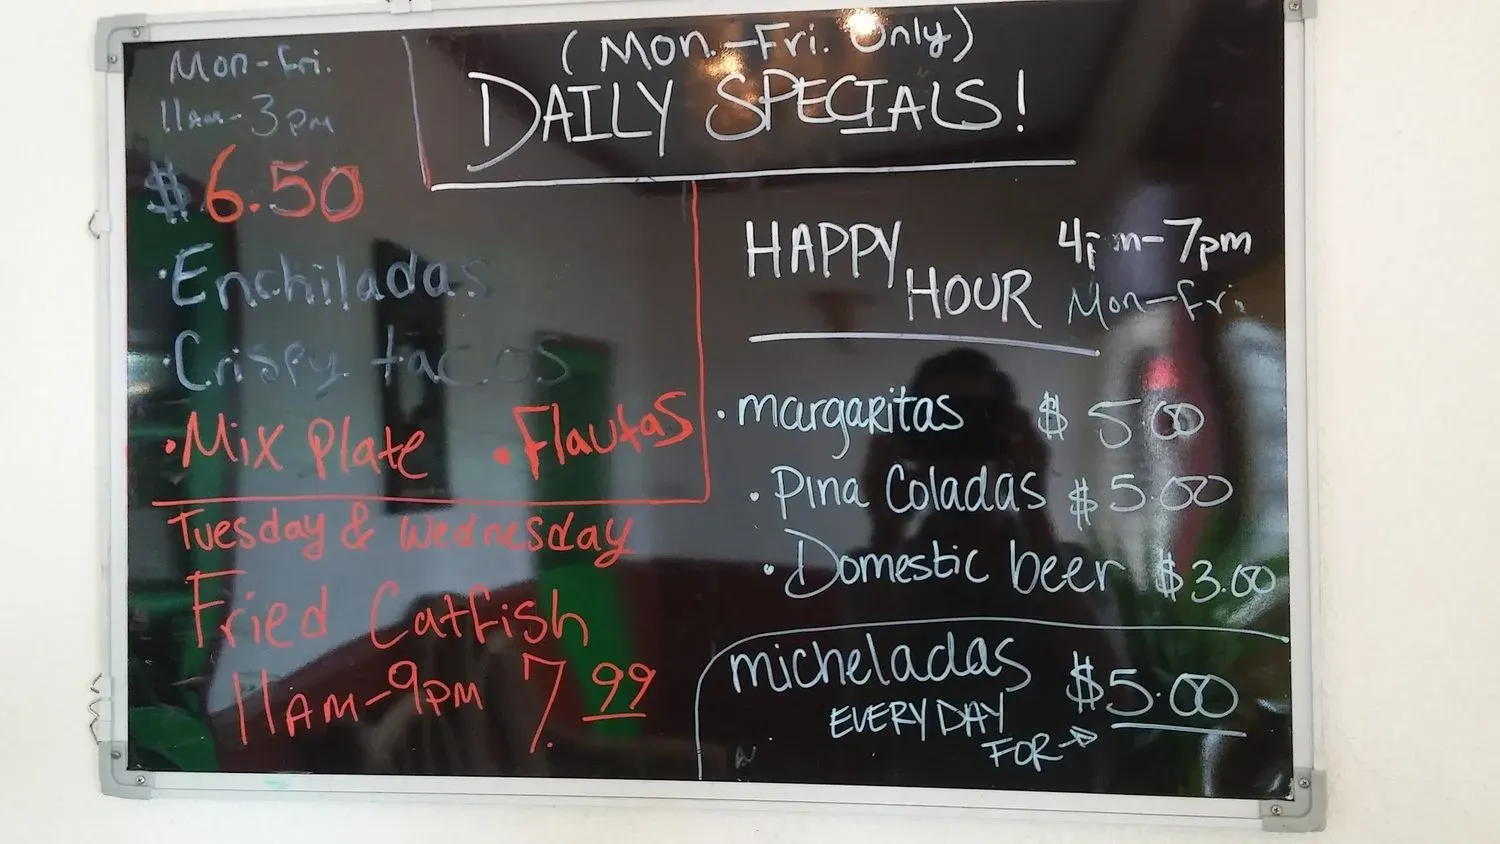 (Mon.-Fri. Only)
DAILY SPECIALS!
Mon-Fri.
11am-3pm
$6.50
·Enchiladas
·Crispy tacos
·Mix Plate ·Flautas
Tuesday & Wednesday
Fried Catfish
11AM-9pm 7.99
HAPPY HOUR 4pm-7pm
Mon-Fri.
·margaritas $5.00
·Pina Coladas $5.00
·Domestic beer $3.00
micheladas $5.00
EVERYDAY
FOR→